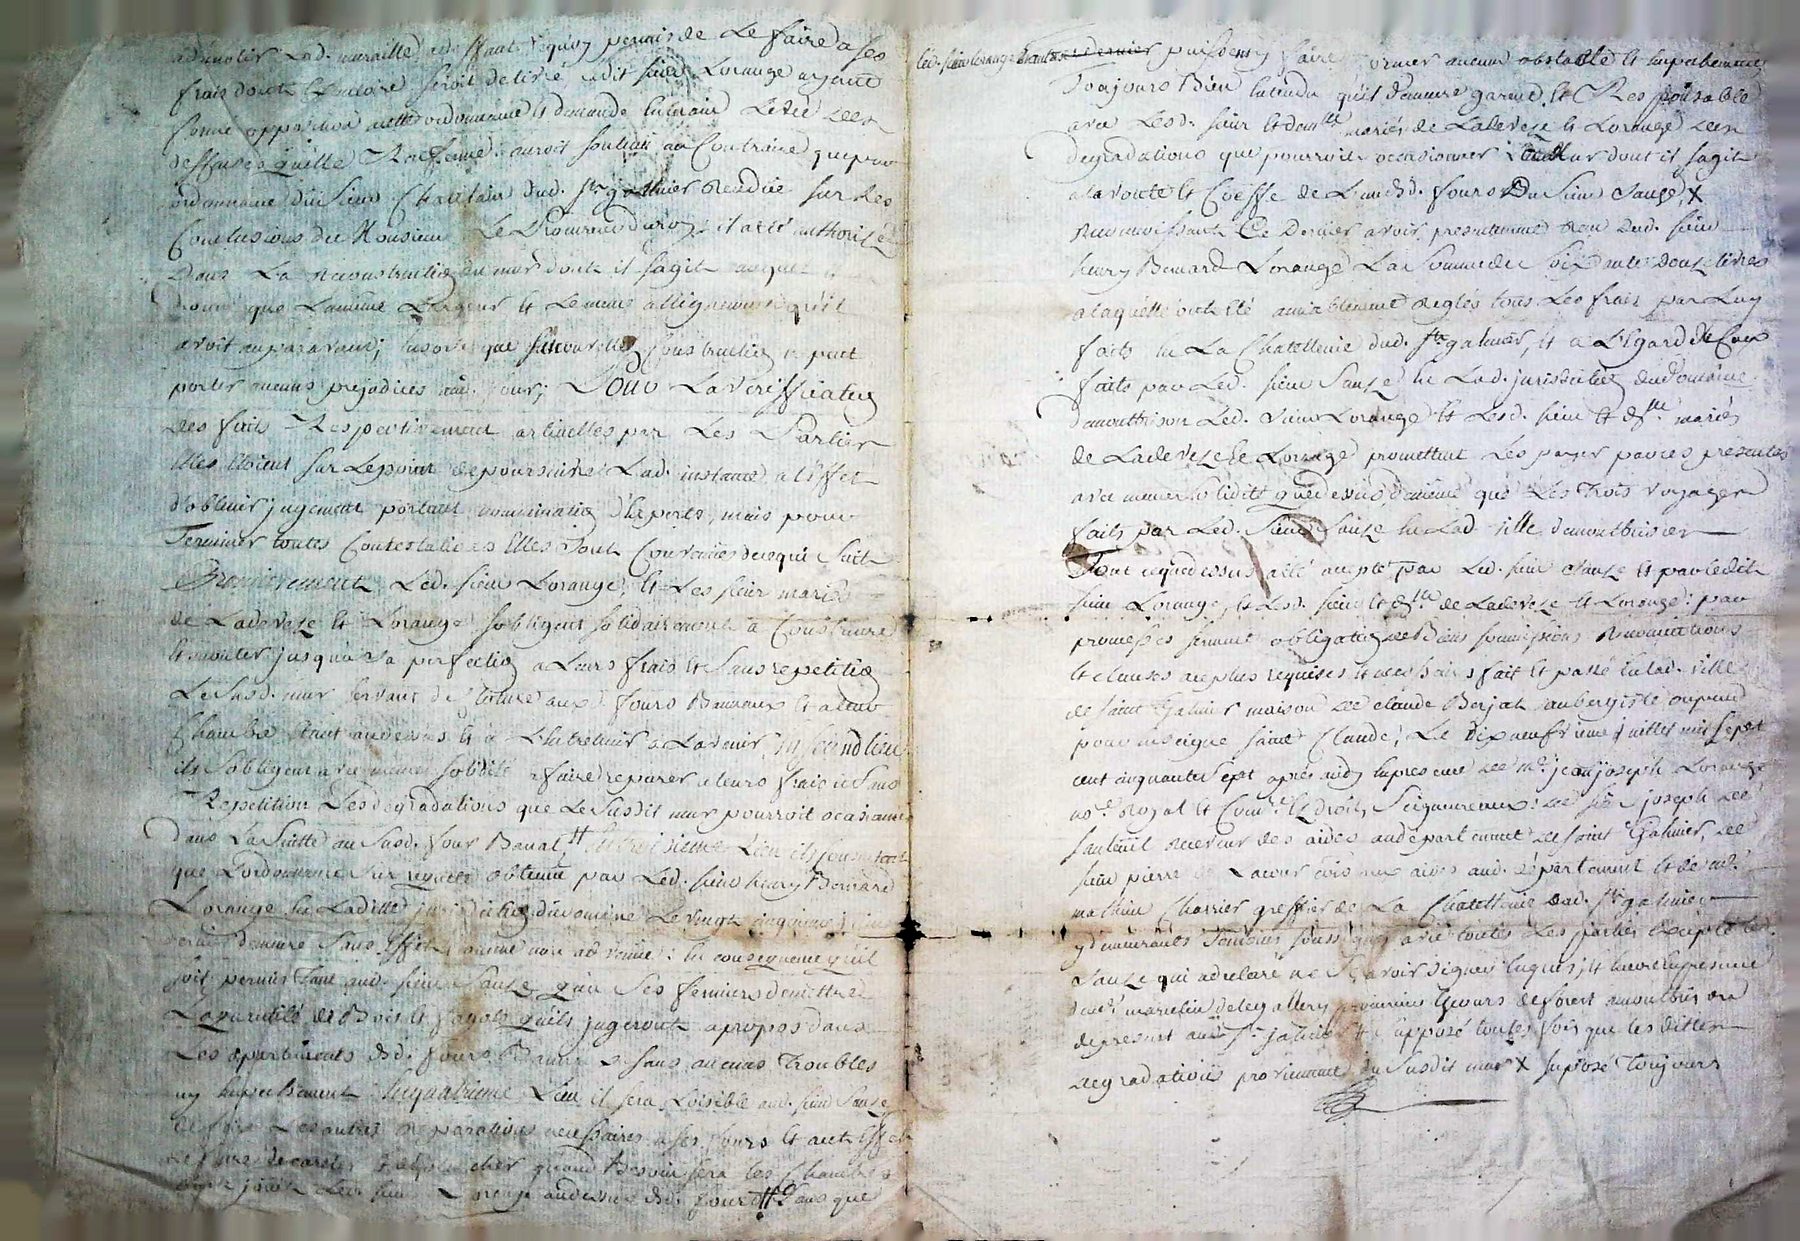 a demolir lad. muraille et de faute requis permis de le faire a ses
frais dont executoire seroit delivré ledit sieur Lorange ayant
formé opposition a cette ordonnance et demandé la main levée des
deffenses qu'elle renferme auroit soutenu au contraire que par
ordonnance du sieur Chatelain dud. St galmier rendüe sur les
Conclusions de Monsieur Le Procureur du roy il a été authorisé
dans La reconstruction du mur dont il sagit auquel il
donné que La même Largeur et Le même allignement qu'il
avoit auparavant; en sorte que sa nouvelle construction ne peut
porter aucuns prejudices aud. four; Pour La veriffication
des faits Respectivement articullés par Les Parties
Elles étoient sur Le point de poursuivre Lad. instance a L'effet
d'obtenir jugement portant nomination d'Experts, mais pour
Terminer toutes Contestations Elles sont Convenües de ce qui suit
Premierement Led. sieur Lorange, et Les sieur mariés
de Ladeveze et Lorange s'obligent solidairement a Construire
et monter jusqu'a sa perfection a Leurs frais et sans repetition
Le susd. mur servant de cloture aux d. fours Banneaux et a leur
chambre étant au dessus et a L'entretenir a Lavenir, en second lieu
ils s'obligent avec meme solidité a faire reparer a leurs frais et sans
Repetition Les degradations que Le susdit mur pourroit ocasionner
dans La suitte au susd. four Banal, et en troisieme Lieu ils consentent
que L'ordonnance sur requette obtenüe par Led. sieur henry Bernard
Lorange en La ditte jurisdiction du domaine Le vingt cinquieme juin
dernier demeure sans effet, comme non advenüe: en consequence qu'il
soit permis tant aud. sieur Sauze qu'a ses fermiers de mettre
La quantité de Bois et fagots qu'ils jugeront a propos dans
Les apartements desd. fours Banneaux sans aucuns Troubles
ny empechement. En quatrieme Lieu il sera Loisible aud. sieur Sauze
de faire Les autres reparations necessaires a ses fours et a cet effet
de faire decarreler et deplancher quand Besoin sera les Chambres
dont jouit Led. sieur Lorange au dessus desd. fours et sans que
led. sieur Lorange puissent y faire former aucun obstacle et empechement
Toujours Bien Entendu qu'il demeure garend et Responsable
avec Lesd. sieur et demlle mariés de Ladeveze et Lorange des
degradations que pourroit occasionner Le mur dont il sagit
a la voute et Coeffe de L'un desd. fours Du sieur Sauze, X
Reconnoissant Ce Dernier avoir presentement reçu dud. sieur
henry Bernard Lorange La somme de Soixante douze livres
a laquelle ont été amiablement reglés tous Les frais par Luy
faits en La Chatellenie dud. St galmier, et a L'Egard de Ceux
faits par Led. sieur Sauze en Lad. jurisdiction du Domaine
de montbrison Led. sieur Lorange et Lesd. sieur et dlle mariés
de Ladeveze et Lorange promettent Les payer par ces presentes
avec meme solidité que dessus, de même que Les Trois voyages
faits par Led. Sieur Sauze en Lad. ville de montbrison
Tout ce que dessus a été accepté par Led. sieur Sauze et par ledit
sieur Lorange, et Lesd. sieur et dlle de Ladeveze et Lorange: par
promesses serment obligation de Biens soumissions Renonciations
et clauses au plus requises et necessaires fait et passé en lad. ville
de saint Galmier maison de claude Berjat aubergiste ou pend
pour enseigne saint Claude, Le dix neufvieme juillet mil sept
cent cinquante sept après midy en presence de Me jean joseph Lorange
nore Royal et Comre Ez droits Seigneuriaux: de sr joseph de
sauteuil Receveur des aides au departement de saint Galmier, de
sieur pierre de Lacour commis aux aides aud. departement et de me
mathieu Charrier greffier de La Chatellenie dud. St galmier
y demeurants Temoins soussignés avec toutes Les parties Excepté led.
Sauze qui a declaré ne Sçavoir signer enquis, et encore En presence
de me marcelin Delegallery procureur Ez cours de forest a montbrison
de present aud. St galmier et apposé toutes fois que les dittes
degradations proviennent du susdit mur X suposé Toujours